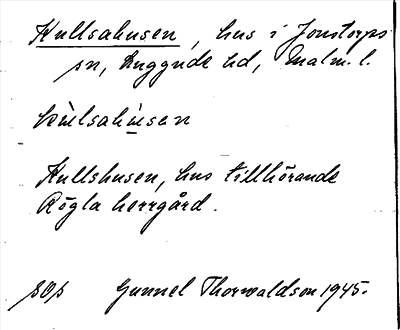 Kullsahusen, hus i Jonstorps
sn, Luggude hd, Malm. l.
Kullshusen, hus tillhörande
Rögla herrgård.
sOs Gunnel Thorwaldson 1945.